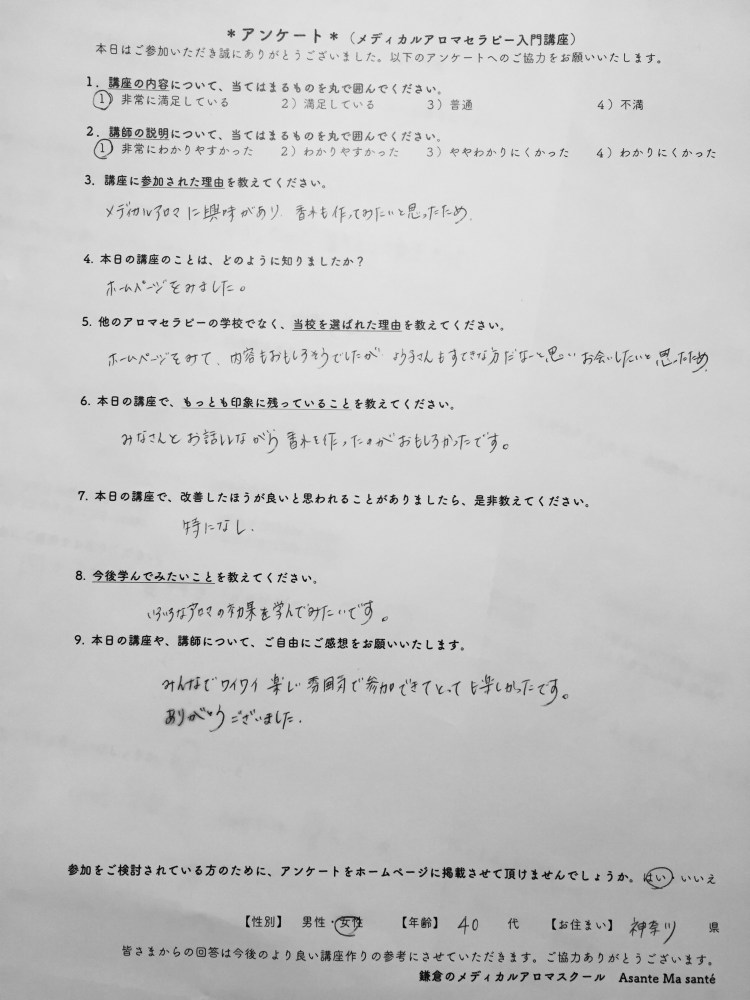 ＊アンケート＊（メディカルアロマセラピー入門講座）
本日はご参加いただき誠にありがとうございました。以下のアンケートへのご協力をお願いいたします。
1. 講座の内容について、当てはまるものを丸で囲んでください。
1）非常に満足している　2）満足している　3）普通　4）不満
2. 講師の説明について、当てはまるものを丸で囲んでください。
1）非常にわかりやすかった　2）わかりやすかった　3）ややわかりにくかった　4）わかりにくかった
3. 講座に参加された理由を教えてください。
メディカルアロマに興味があり、香水も作ってみたいと思ったため。
4. 本日の講座のことは、どのように知りましたか？
ホームページをみました。
5. 他のアロマセラピーの学校でなく、当校を選ばれた理由を教えてください。
ホームページをみて、内容もおもしろそうでしたが、よう子さんもすてきな方だなーと思い お会いしたいと思ったため。
6. 本日の講座で、もっとも印象に残っていることを教えてください。
みなさんとお話ししながら香水を作ったのがおもしろかったです。
7. 本日の講座で、改善したほうが良いと思われることがありましたら、是非教えてください。
特になし.
8. 今後学んでみたいことを教えてください。
いろいろなアロマの効果を学んでみたいです。
9. 本日の講座や、講師について、ご自由にご感想をお願いいたします。
みんなでワイワイ楽しい雰囲気で参加できてとっても楽しかったです。
ありがとうございました.
参加をご検討されている方のために、アンケートをホームページに掲載させて頂けませんでしょうか。はい・いいえ
【性別】　男性・女性　【年齢】　40　代　【お住まい】　神奈川　県
皆さまからの回答は今後のより良い講座作りの参考にさせていただきます。ご協力ありがとうございます。
鎌倉のメディカルアロマスクール　Asante Ma santé